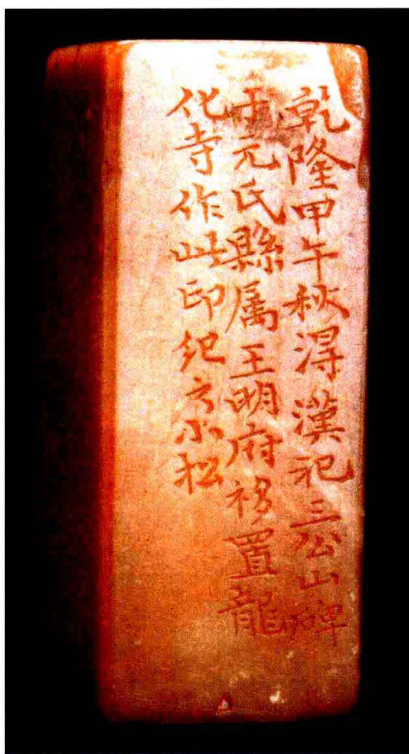 乾隆甲午秋淂漢祀三公山碑
于元氏縣属王明府移置龍
化寺作此印纪之小松